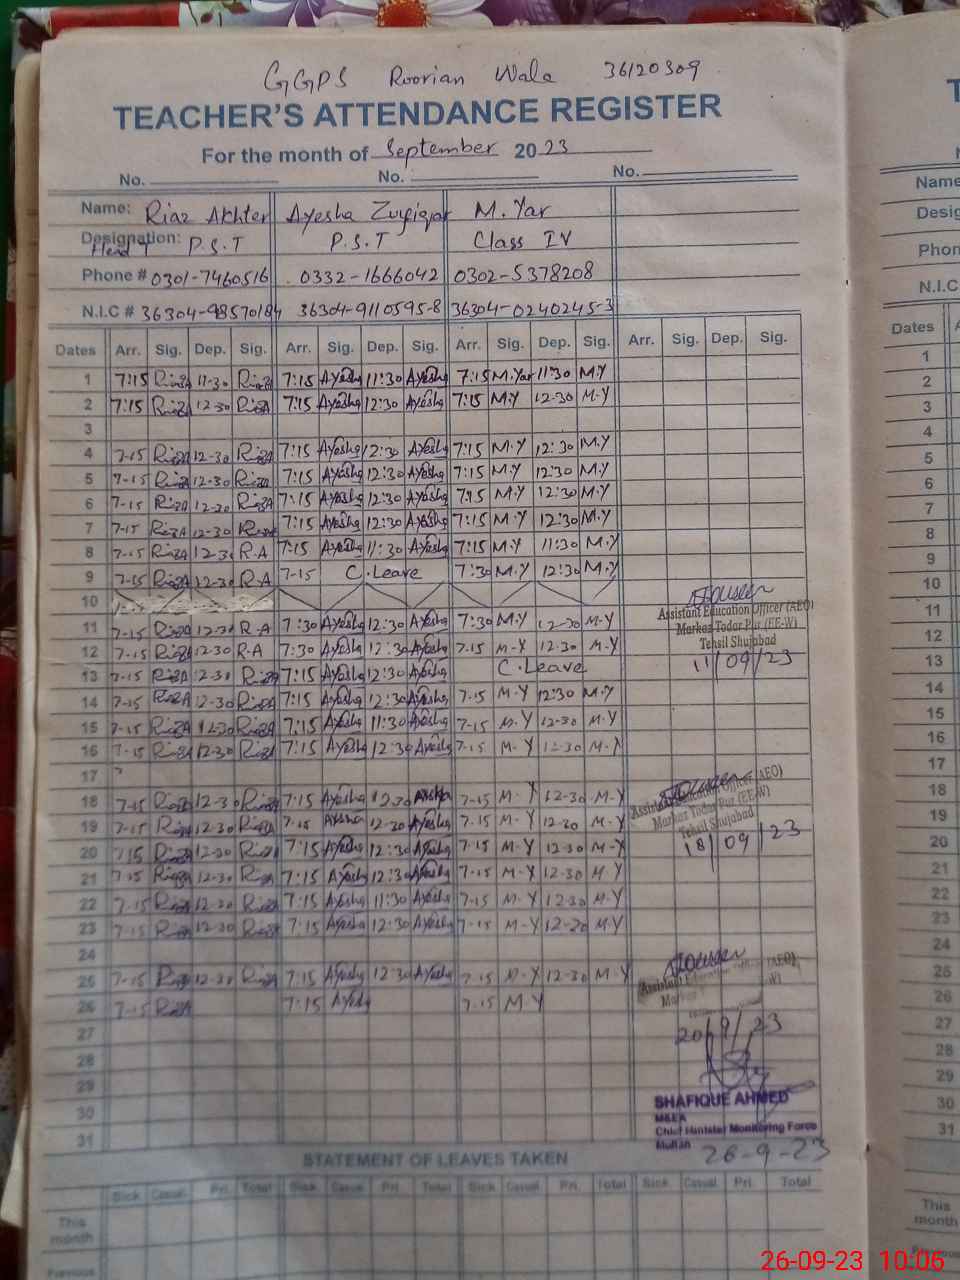 GGPS Roorian Wala 36120309
TEACHER'S ATTENDANCE REGISTER
For the month of September 2023
No. No. No.
Name: Riaz Akhter Ayesha Zulfiqar M. Yar
Designation: Head T P.S.T P.S.T Class IV
Phone # 0301-7460516 0332-1666042 0302-5378208
N.I.C # 36304-98570184 36304-9110595-8 36304-0240245-3
Dates Arr. Sig. Dep. Sig. Arr. Sig. Dep. Sig. Arr. Sig. Dep. Sig. Arr. Sig. Dep. Sig.
1 7:15 RiazA 11-30 RiazA 7:15 Ayesha 11:30 Ayesha 7:15 M.Yar 11:30 M.Y
2 7:15 RiazA 12-30 RiazA 7:15 Ayesha 12:30 Ayesha 7:15 M.Y 12-30 M-Y
3
4 7-15 RiazA 12-30 RiazA 7:15 Ayesha 12:30 Ayesha 7:15 M.Y 12:30 M.Y
5 7-15 RiazA 12-30 RiazA 7:15 Ayesha 12:30 Ayesha 7:15 M.Y 12:30 M.Y
6 7-15 RiazA 12-30 RiazA 7:15 Ayesha 12:30 Ayesha 7:15 M.Y 12:30 M.Y
7 7-15 RiazA 12-30 RiazA 7:15 Ayesha 12:30 Ayesha 7:15 M.Y 12:30 M.Y
8 7-15 RiazA 12-30 R.A 7:15 Ayesha 11:30 Ayesha 7:15 M.Y 11:30 M.Y
9 7-15 RiazA 12-30 R-A 7-15 C.Leave 7:30 M.Y 12:30 M.Y
10
11 7-15 RiazA 12-30 R-A 7:30 Ayesha 12:30 Ayesha 7:30 M.Y 12-30 M-Y
Assistant Education Officer (AEO)
Markaz Todar Pur (EE-W)
Tehsil Shujabad
11/09/23
12 7-15 RiazA 12-30 R-A 7:30 Ayesha 12:30 Ayesha 7.15 M-Y 12-30 M-Y
13 7-15 RiazA 12-30 RiazA 7:15 Ayesha 12:30 Ayesha C.Leave
14 7-15 RiazA 12-30 RiazA 7:15 Ayesha 12:30 Ayesha 7-15 M-Y 12:30 M.Y
15 7-15 RiazA 12-30 RiazA 7:15 Ayesha 11:30 Ayesha 7-15 M-Y 12-30 M.Y
16 7-15 RiazA 12-30 RiazA 7:15 Ayesha 12:30 Ayesha 7-15 M-Y 12-30 M-Y
17
18 7-15 RiazA 12-30 RiazA 7:15 Ayesha 12-30 Ayesha 7-15 M-Y 12-30 M-Y
Assistant Education Officer (AEO)
Markaz Todar Pur (EE-W)
Tehsil Shujabad
18/09/23
19 7-15 RiazA 12-30 RiazA 7-15 Ayesha 12-30 Ayesha 7-15 M-Y 12-30 M-Y
20 7:15 RiazA 12-30 RiazA 7:15 Ayesha 12:30 Ayesha 7-15 M-Y 12-30 M-Y
21 7-15 RiazA 12-30 RiazA 7:15 Ayesha 12:30 Ayesha 7-15 M-Y 12-30 M Y
22 7-15 RiazA 12-30 RiazA 7:15 Ayesha 11:30 Ayesha 7-15 M-Y 12-30 M-Y
23 7-15 RiazA 12-30 RiazA 7:15 Ayesha 12:30 Ayesha 7-15 M-Y 12-20 M-Y
24
25 7-15 RiazA 12-30 RiazA 7:15 Ayesha 12:30 Ayesha 7-15 M-Y 12-30 M-Y
Assistant Education Officer (AEO)
26 7-15 RiazA 7:15 Ayesha 7.15 M Y
27
28
29
30
31
SHAFIQUE AHMED
M&EA
Chief Minister Monitoring Force
Multan
26-9-23
STATEMENT OF LEAVES TAKEN
Sick Casual Pri. Total Sick Casual Pri. Total Sick Casual Pri. Total Sick Casual Pri. Total
This month
Previous
T
Name
Desig
Phon
N.I.C
Dates
1
2
3
4
5
6
7
8
9
10
11
12
13
14
15
16
17
18
19
20
21
22
23
24
25
26
27
28
29
30
31
This month
26-09-23 10:06